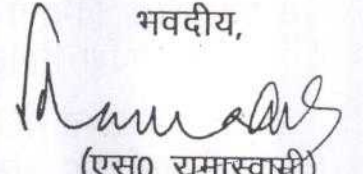 भवदीय,
(एस0 रामास्वामी)